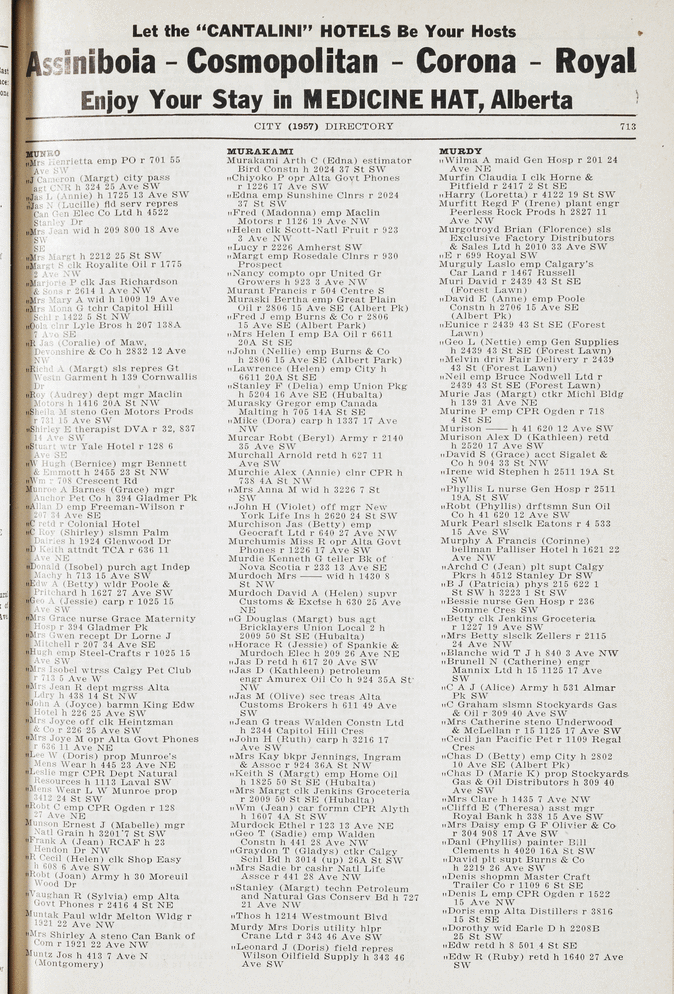 Let the "CANTALINI" HOTELS Be Your Hosts
Assiniboia - Cosmopolitan - Corona - Royal
Enjoy Your Stay in MEDICINE HAT, Alberta
CITY (1957) DIRECTORY 713
MUNRO
"Mrs Henrietta emp PO r 701 55
Ave SW
"J Cameron (Margt) city pass
agt CNR h 324 25 Ave SW
"Jas L (Annie) h 1725 13 Ave SW
"Jas N (Lucille) fld serv repres
Can Gen Elec Co Ltd h 4522
Stanley Dr
"Mrs Jean wid h 209 800 18 Ave
SW
SE
"Mrs Margt h 2212 25 St SW
"Margt S clk Royalite Oil r 1775
2 Ave NW
"Marjorie P clk Jas Richardson
& Sons r 2614 1 Ave NW
"Mrs Mary A wid h 1009 19 Ave
"Mrs Mona G tchr Capitol Hill
Schl r 1422 5 St NW
"Oola clnr Lyle Bros h 207 138A
7 Ave SE
"R Jas (Coralie) of Maw,
Devonshire & Co h 2832 12 Ave
NW
"Richd A (Margt) sls repres Gt
Westn Garment h 139 Cornwallis
Dr
"Roy (Audrey) dept mgr Maclin
Motors h 1416 20A St NW
"Sheila M steno Gen Motors Prods
r 731 15 Ave SW
"Shirley E therapist DVA r 32, 837
14 Ave SW
"Stuart wtr Yale Hotel r 128 6
Ave SE
"W Hugh (Bernice) mgr Bennett
& Emmott h 2455 23 St NW
"Wm r 708 Crescent Rd
Munroe A Barnes (Grace) mgr
Anchor Pet Co h 394 Gladmer Pk
"Allan D emp Freeman-Wilson r
207 34 Ave SE
"C retd r Colonial Hotel
"C Roy (Shirley) slsmn Palm
Dairies h 1924 Glenwood Dr
"D Keith attndt TCA r 636 11
Ave NE
"Donald (Isobel) purch agt Indep
Machy h 713 15 Ave SW
"Edw A (Betty) wldr Poole &
Pritchard h 1627 27 Ave SW
"Geo A (Jessie) carp r 1025 15
Ave SW
"Mrs Grace nurse Grace Maternity
Hosp r 394 Gladmer Pk
"Mrs Gwen recept Dr Lorne J
Mitchell r 207 34 Ave SE
"Hugh emp Steel-Crafts r 1025 15
Ave SW
"Mrs Isobel wtrss Calgy Pet Club
r 713 5 Ave W
"Mrs Jean R dept mgrss Alta
Ldry h 438 14 St NW
"John A (Joyce) barmn King Edw
Hotel h 226 25 Ave SW
"Mrs Joyce off clk Heintzman
& Co r 226 25 Ave SW
"Mrs Joye M opr Alta Govt Phones
r 636 11 Ave NE
"Lee W (Doris) prop Munroe's
Mens Wear h 445 23 Ave NE
"Leslie mgr CPR Dept Natural
Resources h 1113 Laval SW
"Mens Wear L W Munroe prop
3412 24 St SW
"Robt C emp CPR Ogden r 128
27 Ave NE
Munson Ernest J (Mabelle) mgr
Natl Grain h 3201 7 St SW
"Frank A (Jean) RCAF h 23
Hendon Dr NW
"R Cecil (Helen) clk Shop Easy
h 608 6 Ave SW
"Robt (Joan) Army h 30 Moreuil
Wood Dr
"Vaughan R (Sylvia) emp Alta
Govt Phones r 2416 4 St NE
Muntak Paul wldr Melton Wldg r
1921 22 Ave NW
"Mrs Shirley A steno Can Bank of
Com r 1921 22 Ave NW
Muntz Jos h 413 7 Ave N
(Montgomery)
MURAKAMI
Murakami Arth C (Edna) estimator
Bird Constn h 2024 37 St SW
"Chiyoko P opr Alta Govt Phones
r 1226 17 Ave SW
"Edna emp Sunshine Clnrs r 2024
37 St SW
"Fred (Madonna) emp Maclin
Motors r 1126 19 Ave NW
"Helen clk Scott-Natl Fruit r 923
3 Ave NW
"Lucy r 2226 Amherst SW
"Margt emp Rosedale Clnrs r 930
Prospect
"Nancy compto opr United Gr
Growers h 923 3 Ave NW
Murant Francis r 504 Centre S
Muraski Bertha emp Great Plain
Oil r 2806 15 Ave SE (Albert Pk)
"Fred J emp Burns & Co r 2806
15 Ave SE (Albert Park)
"Mrs Helen I emp BA Oil r 6611
20A St SE
"John (Nellie) emp Burns & Co
h 2806 15 Ave SE (Albert Park)
"Lawrence (Helen) emp City h
6611 20A St SE
"Stanley F (Delia) emp Union Pkg
h 5204 16 Ave SE (Hubalta)
Murasky Gregor emp Canada
Malting h 705 14A St SE
"Mike (Dora) carp h 1337 17 Ave
NW
Murcar Robt (Beryl) Army r 2140
35 Ave SW
Murchall Arnold retd h 627 11
Ave SW
Murchie Alex (Annie) clnr CPR h
738 4A St NW
"Mrs Anna M wid h 3226 7 St
SW
"John H (Violet) off mgr New
York Life Ins h 2620 24 St SW
Murchison Jas (Betty) emp
Geocraft Ltd r 640 27 Ave NW
Murchumis Miss R opr Alta Govt
Phones r 1226 17 Ave SW
Murdie Kenneth G teller Bk of
Nova Scotia r 233 13 Ave SE
Murdoch Mrs —— wid h 1430 8
St NW
Murdoch David A (Helen) supvr
Customs & Excise h 630 25 Ave
NE
"G Douglas (Margt) bus agt
Bricklayers Union Local 2 h
2009 50 St SE (Hubalta)
"Horace R (Jessie) of Spankie &
Murdoch Elec h 209 26 Ave NE
"Jas D retd h 617 20 Ave SW
"Jas D (Kathleen) petroleum
engr Amurex Oil Co h 924 35A St
NW
"Jas M (Olive) sec treas Alta
Customs Brokers h 611 49 Ave
SW
"Jean G treas Walden Constn Ltd
h 2344 Capitol Hill Cres
"John H (Ruth) carp h 3216 17
Ave SW
"Mrs Kay bkpr Jennings, Ingram
& Assoc r 924 36A St NW
"Keith S (Margt) emp Home Oil
h 1825 50 St SE (Hubalta)
"Mrs Margt clk Jenkins Groceteria
r 2009 50 St SE (Hubalta)
"Wm (Jean) car formn CPR Alyth
h 1607 4A St NW
Murdock Ethel r 123 13 Ave NE
"Geo T (Sadie) emp Walden
Constn h 441 28 Ave NW
"Graydon T (Gladys) ctkr Calgy
Schl Bd h 3014 (up) 26A St SW
"Mrs Sadie br cashr Natl Life
Assce r 441 28 Ave NW
"Stanley (Margt) techn Petroleum
and Natural Gas Conserv Bd h 727
21 Ave NW
"Thos h 1214 Westmount Blvd
Murdy Mrs Doris utility hlpr
Crane Ltd r 343 46 Ave SW
"Leonard J (Doris) field repres
Wilson Oilfield Supply h 343 46
Ave SW
MURDY
"Wilma A maid Gen Hosp r 201 24
Ave NE
Murfin Claudia I clk Horne &
Pitfield r 2417 2 St SE
"Harry (Loretta) r 4122 19 St SW
Murfitt Regd F (Irene) plant engr
Peerless Rock Prods h 2827 11
Ave NW
Murgotroyd Brian (Florence) sls
Exclusive Factory Distributors
& Sales Ltd h 2010 33 Ave SW
"E r 699 Royal SW
Murguly Laslo emp Calgary's
Car Land r 1467 Russell
Muri David r 2439 43 St SE
(Forest Lawn)
"David E (Anne) emp Poole
Constn h 2706 15 Ave SE
(Albert Pk)
"Eunice r 2439 43 St SE (Forest
Lawn)
"Geo L (Nettie) emp Gen Supplies
h 2439 43 St SE (Forest Lawn)
"Melvin driv Fair Delivery r 2439
43 St (Forest Lawn)
"Neil emp Bruce Nodwell Ltd r
2439 43 St SE (Forest Lawn)
Murie Jas (Margt) ctkr Michl Bldg
h 139 31 Ave NE
Murine P emp CPR Ogden r 718
4 St SE
Murison —— h 41 620 12 Ave SW
Murison Alex D (Kathleen) retd
h 2520 17 Ave SW
"David S (Grace) acct Sigalet &
Co h 904 33 St NW
"Irene wid Stephen h 2511 19A St
SW
"Phyllis L nurse Gen Hosp r 2511
19A St SW
"Robt (Phyllis) drftsmn Sun Oil
Co h 41 620 12 Ave SW
Murk Pearl slsclk Eatons r 4 533
15 Ave SW
Murphy A Francis (Corinne)
bellman Palliser Hotel h 1621 22
Ave NW
"Archd C (Jean) plt supt Calgy
Pkrs h 4512 Stanley Dr SW
"B J (Patricia) phys 215 622 1
St SW h 3223 1 St SW
"Bessie nurse Gen Hosp r 236
Somme Cres SW
"Betty clk Jenkins Groceteria
r 1227 19 Ave SW
"Mrs Betty slsclk Zellers r 2115
24 Ave NW
"Blanche wid T J h 840 3 Ave NW
"Brunell N (Catherine) engr
Mannix Ltd h 15 1125 17 Ave
SW
"C A J (Alice) Army h 531 Almar
Pk SW
"C Graham slsmn Stockyards Gas
& Oil r 309 40 Ave SW
"Mrs Catherine steno Underwood
& McLellan r 15 1125 17 Ave SW
"Cecil jan Pacific Pet r 1109 Regal
Cres
"Chas D (Betty) emp City h 2802
10 Ave SE (Albert Pk)
"Chas D (Marie K) prop Stockyards
Gas & Oil Distributors h 309 40
Ave SW
"Mrs Clare h 1435 7 Ave NW
"Cliffd E (Theresa) asst mgr
Royal Bank h 338 15 Ave SW
"Mrs Daisy emp G F Olivier & Co
r 304 908 17 Ave SW
"Danl (Phyllis) painter Bill
Clements h 4020 16A St SW
"David plt supt Burns & Co
h 2219 26 Ave SW
"Denis shopmn Master Craft
Trailer Co r 1109 6 St SE
"Denis L emp CPR Ogden r 1522
15 Ave NW
"Doris emp Alta Distillers r 3816
15 St SW
"Dorothy wid Earle D h 2208B
25 St SW
"Edw retd h 8 501 4 St SE
"Edw R (Ruby) retd h 1640 27 Ave
SW